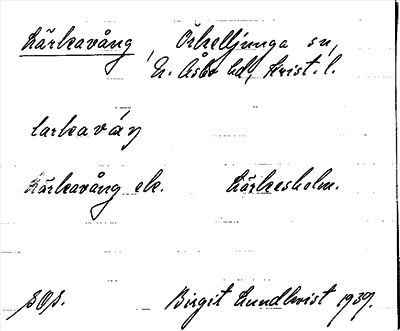 Lärkavång, Örkelljunga sn,
N. Åsbo hd, Krist. l.
larkaváŋ
Lärkavång ek. Lärkesholm.
SOS. Birgit Lundkvist 1939.